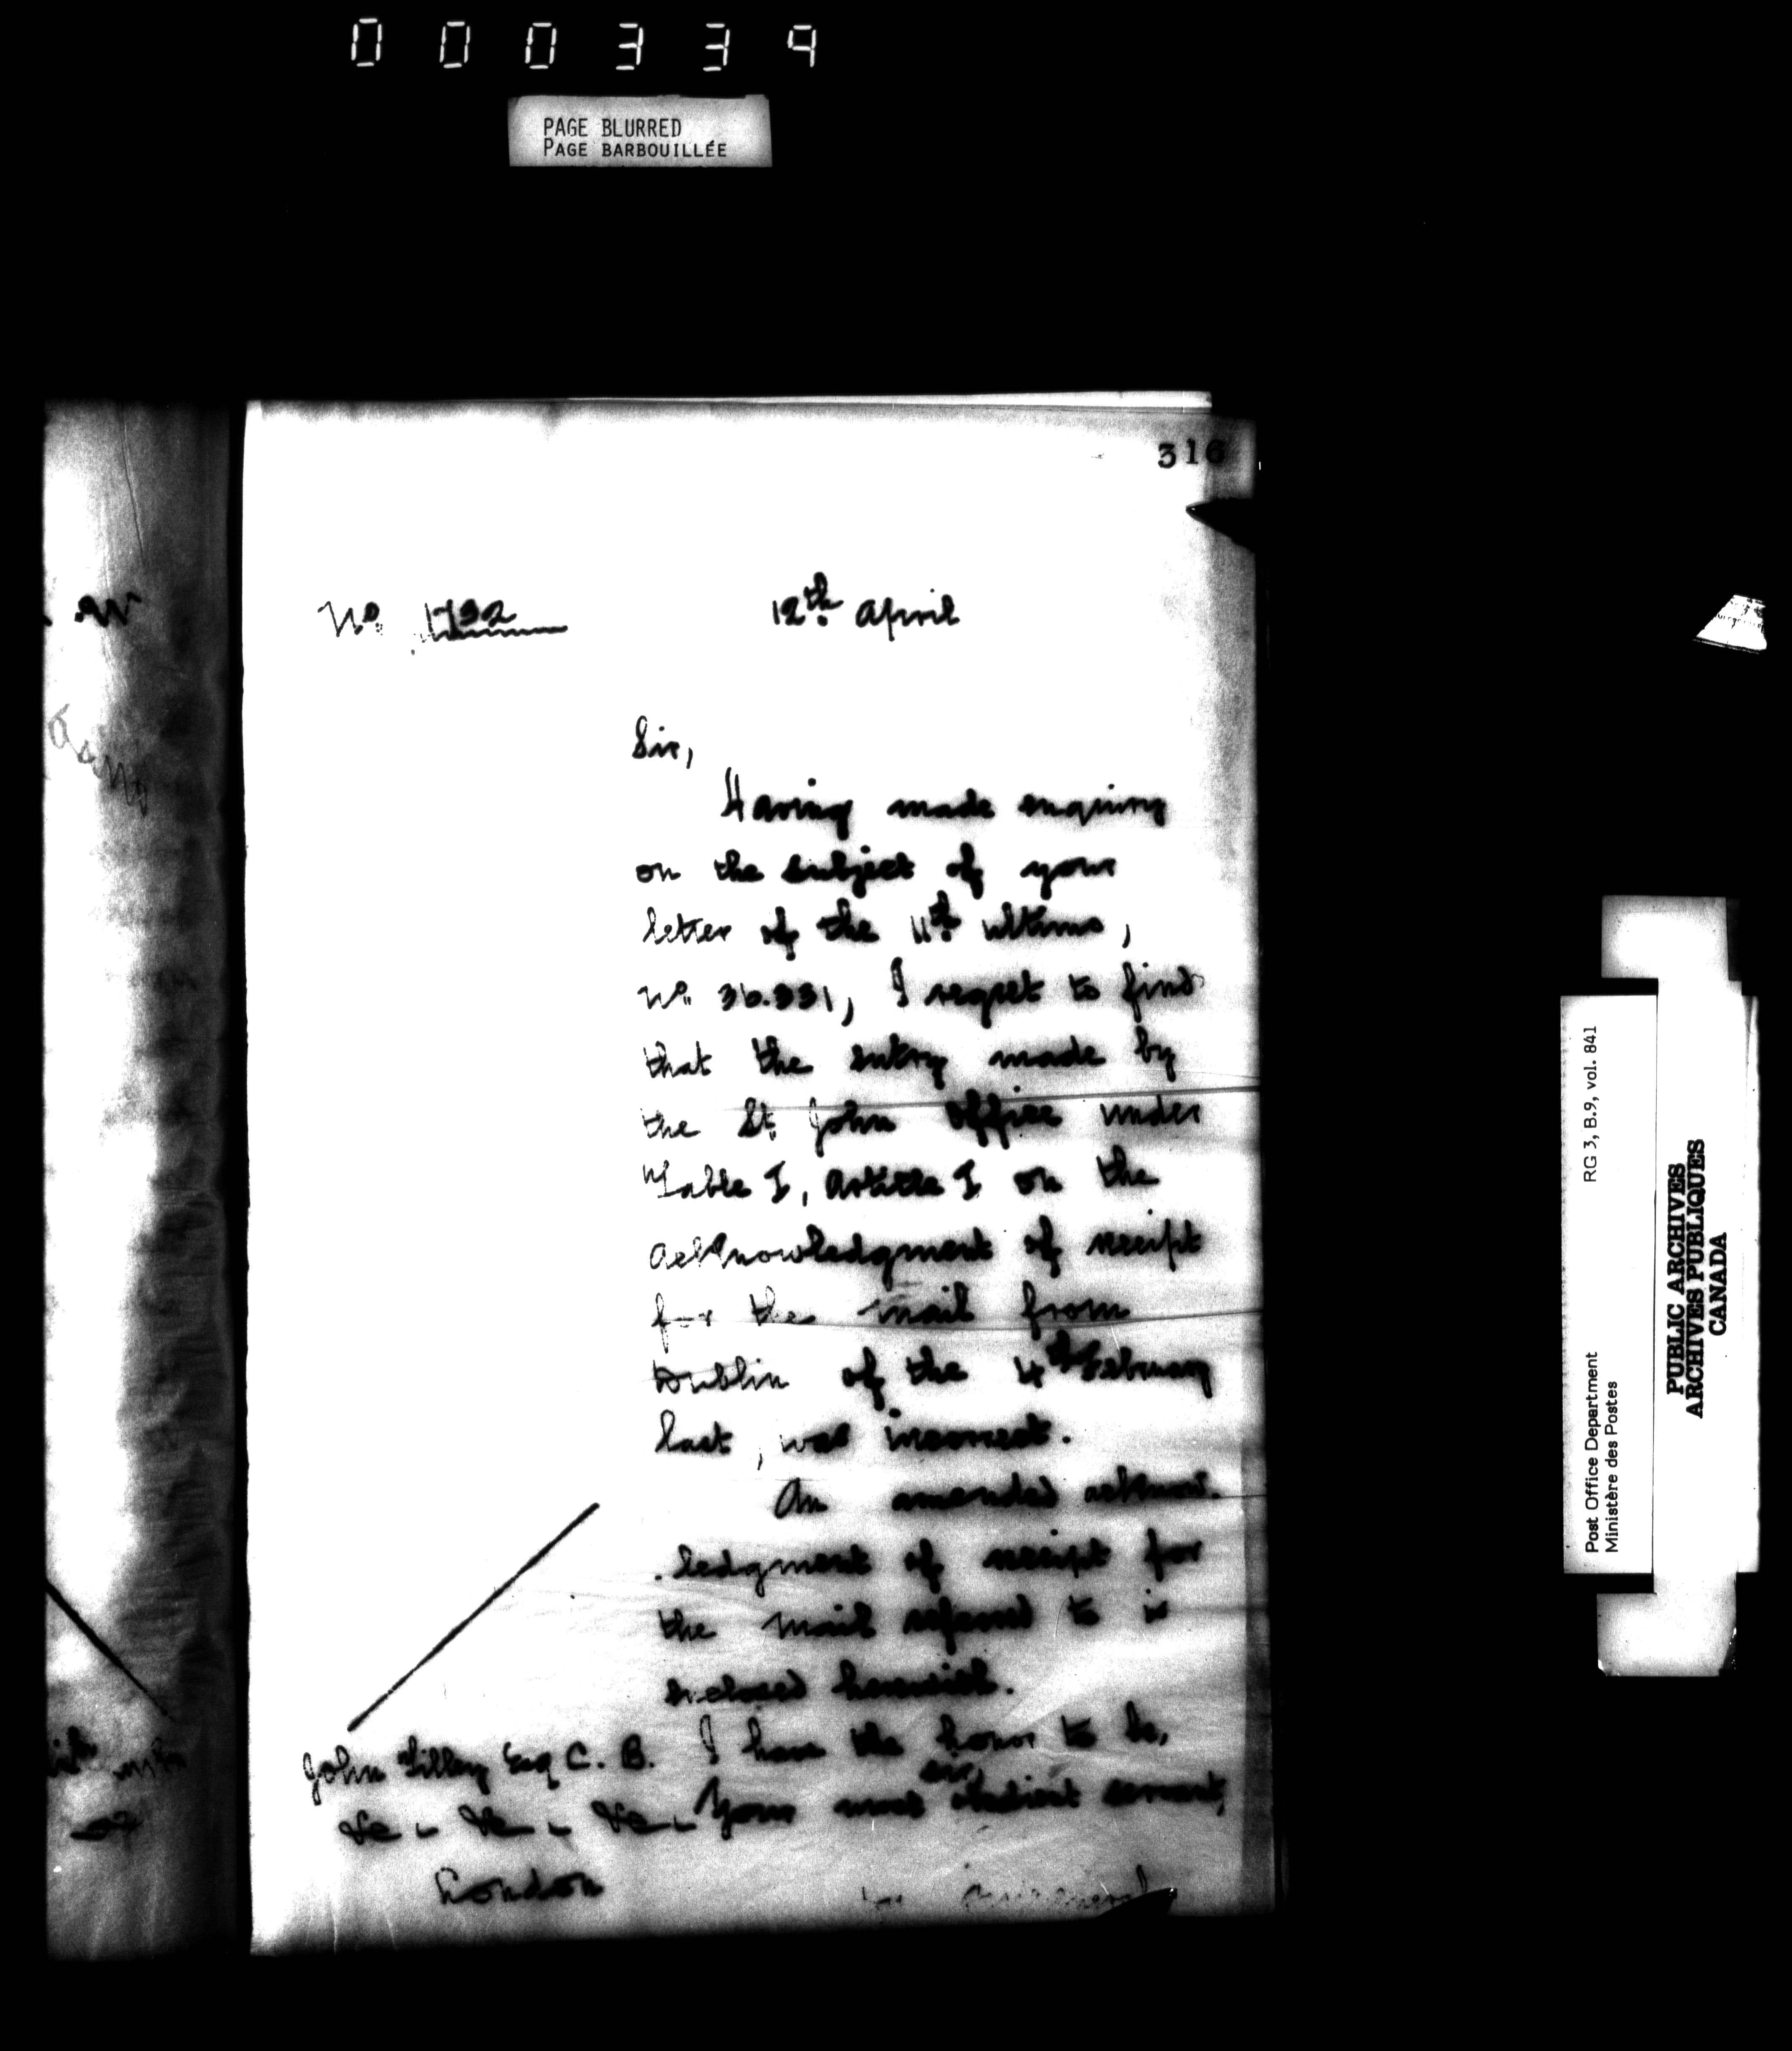 000339
PAGE BLURRED
PAGE BARBOUILLÉE
316
No. 1732
12th. April
Sir,
Having made enquiry
on the subject of your
letter of the 11th. ultimo,
No. 36.331, I regret to find
that the entry made by
the St. John Office under
Table I, Article I on the
acknowledgment of receipt
for the mail from
Dublin of the 4th February
last, was incorrect.
An amended acknow-
-ledgment of receipt for
the mail referred to is
enclosed herewith.
I have the honor to be,
Sir,
Your most obedient servant,
John Tilley Esq C. B.
&c. &c. &c.
London
Post Office Department
Ministère des Postes
RG 3, B.9, vol. 841
PUBLIC ARCHIVES
ARCHIVES PUBLIQUES
CANADA